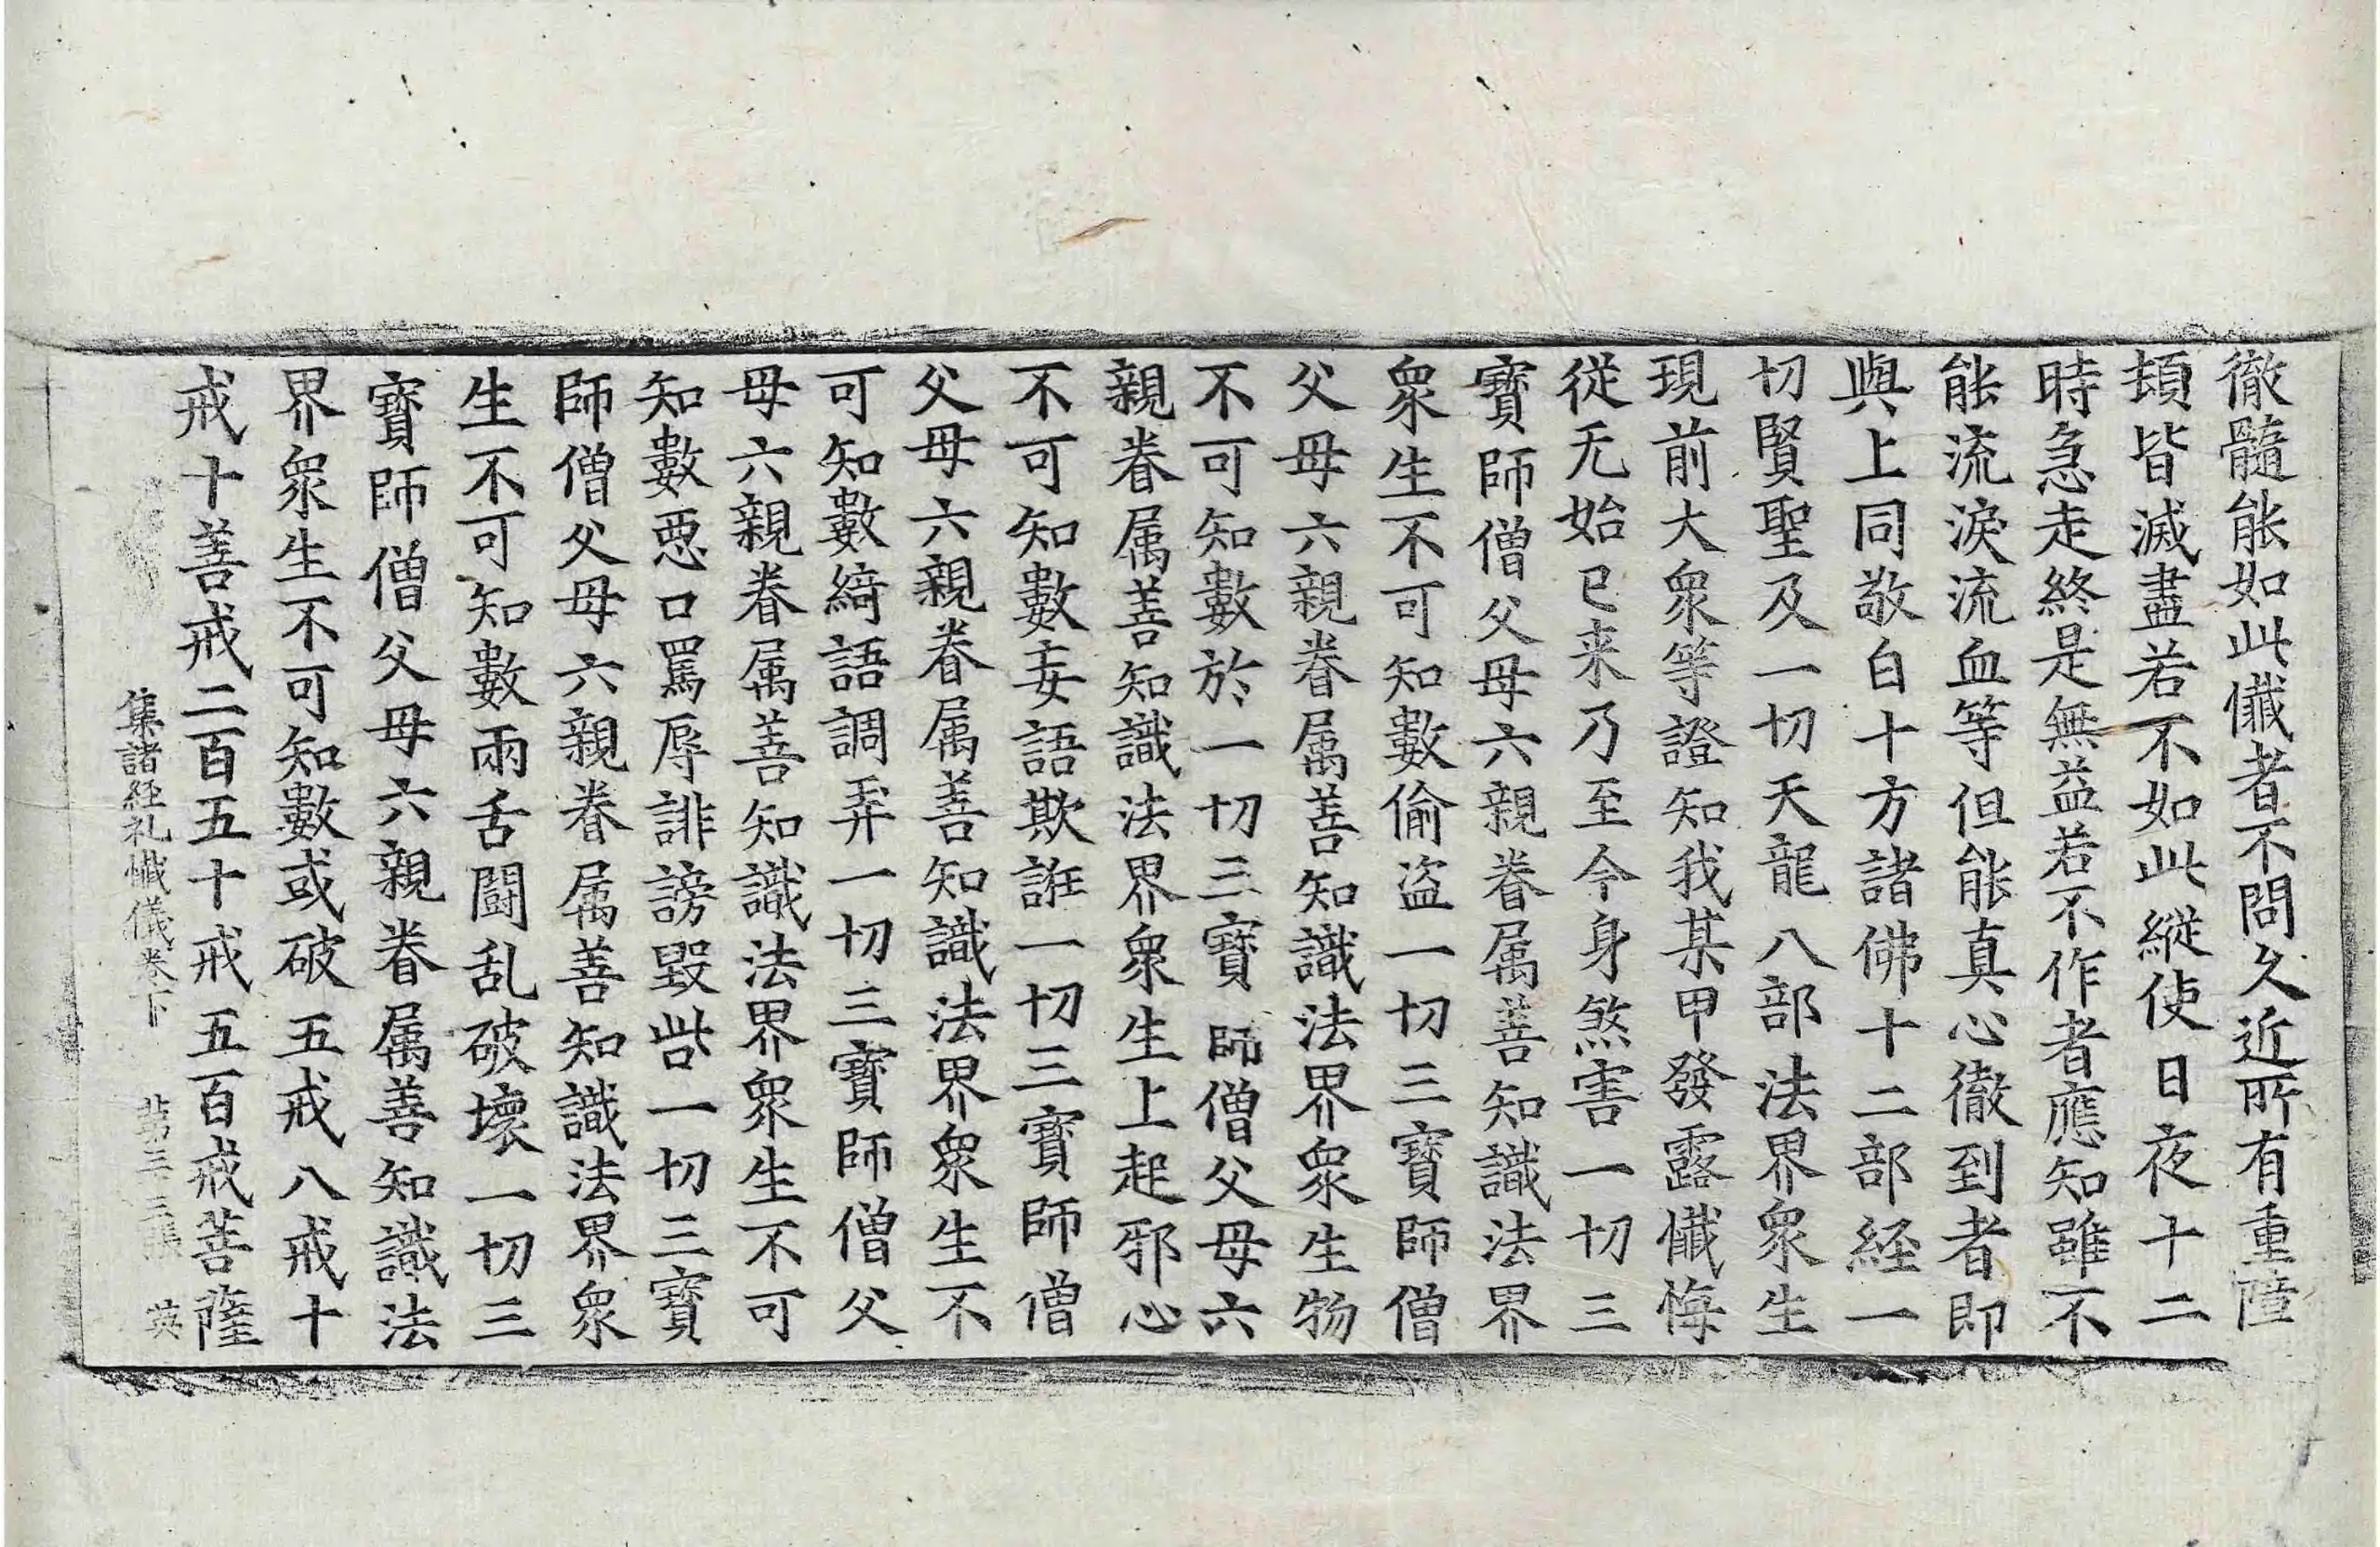 徹髓能如此懴者不問久近所有重障
頓皆滅盡若不如此縱使日夜十二
時急走終是無益若不作者應知雖不
能流淚流血等但能真心徹到者即
與上同敬白十方諸佛十二部経一
切賢聖及一切天龍八部法界衆生
現前大衆等證知我某甲發露懴悔
従无始已来乃至今身煞害一切三
寶師僧父母六親眷属善知識法界
衆生不可知數偷盗一切三寶師僧
父母六親眷属善知識法界衆生物
不可知數於一切三寶師僧父母六
親眷属善知識法界衆生上起邪心
不可知數妄語欺誑一切三寶師僧
父母六親眷属善知識法界衆生不
可知數綺語調弄一切三寶師僧父
母六親眷属善知識法界衆生不可
知數惡口罵辱誹謗毀呰一切三寶
師僧父母六親眷属善知識法界衆
生不可知數兩舌闘乱破壞一切三
寶師僧父母六親眷属善知識法
界衆生不可知數或破五戒八戒十
戒十善戒二百五十戒五百戒菩薩
集諸経礼懴儀卷下 第三三張 英